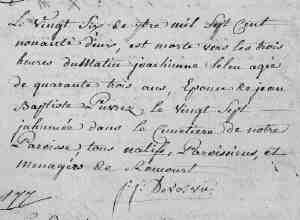 Le vingt Six de 9bre mil Sept Cent
nonante deux, est morte vers les trois
heures du Matin joachinne Leleu agée
de quarante trois ans, Epouse de jean
Baptiste Purrez le vingt Sept
inhumée dans le Cimetiere de notre
Paroisse, tous natifs, Paroissiens, et
menagers de
177